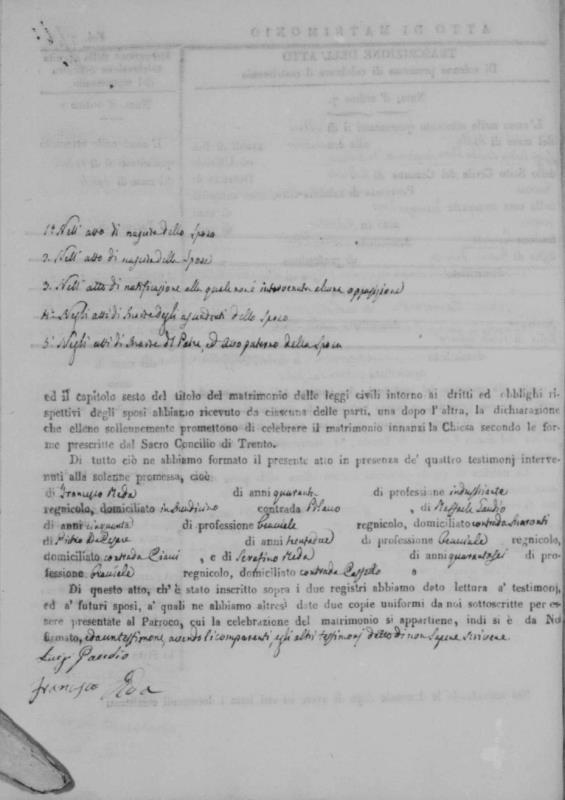 1.º Nell' atto di nascita dello Sposo
2. Nell' atto di nascita della Sposa
3. Nell' atto di notificazione alla quale non è intervenuta alcuna opposizione
4.º Negli atti di morte degli ascendenti dello Sposo
5.º Negli atti di morte del Padre, ed avo paterno della Sposa
ed il capitolo sesto del titolo del matrimonio dalle leggi civili intorno ai dritti ed obblighi ri-
spettivi degli sposi abbiamo ricevuto da ciascuna delle parti, una dopo l' altra, la dichiarazione
che elleno sollennemente promettono di celebrare il matrimonio innanzi la Chiesa secondo le for-
me prescritte dal Sacro Concilio di Trento.
Di tutto ciò ne abbiamo formato il presente atto in presenza de' quattro testimonj interve-
nuti alla solenne promessa, cioè
di Francesco Reda di anni quaranta di professione industriante
regnicolo, domiciliato in contrada , di Raffaele Gaudio
di anni cinquanta di professione Bracciale regnicolo, domiciliato contrada
di Pietro DeCesare di anni trentadue di professione Bracciale regnicolo,
domiciliato contrada , e di Serafino Reda di anni quarantasei di pro-
fessione Bracciale regnicolo, domiciliato contrada
Di questo atto, ch' è stato inscritto sopra i due registri abbiamo dato lettura a' testimonj,
ed a' futuri sposi, a' quali ne abbiamo altresì date due copie uniformi da noi sottoscritte per es-
sere presentate al Parroco, cui la celebrazione del matrimonio si appartiene, indi si è da Noi
firmato, ed a un testimone, avendo li comparenti, e gli altri testimonj detto di non sapere scrivere.
Luigi Gaudio
Francesco Reda